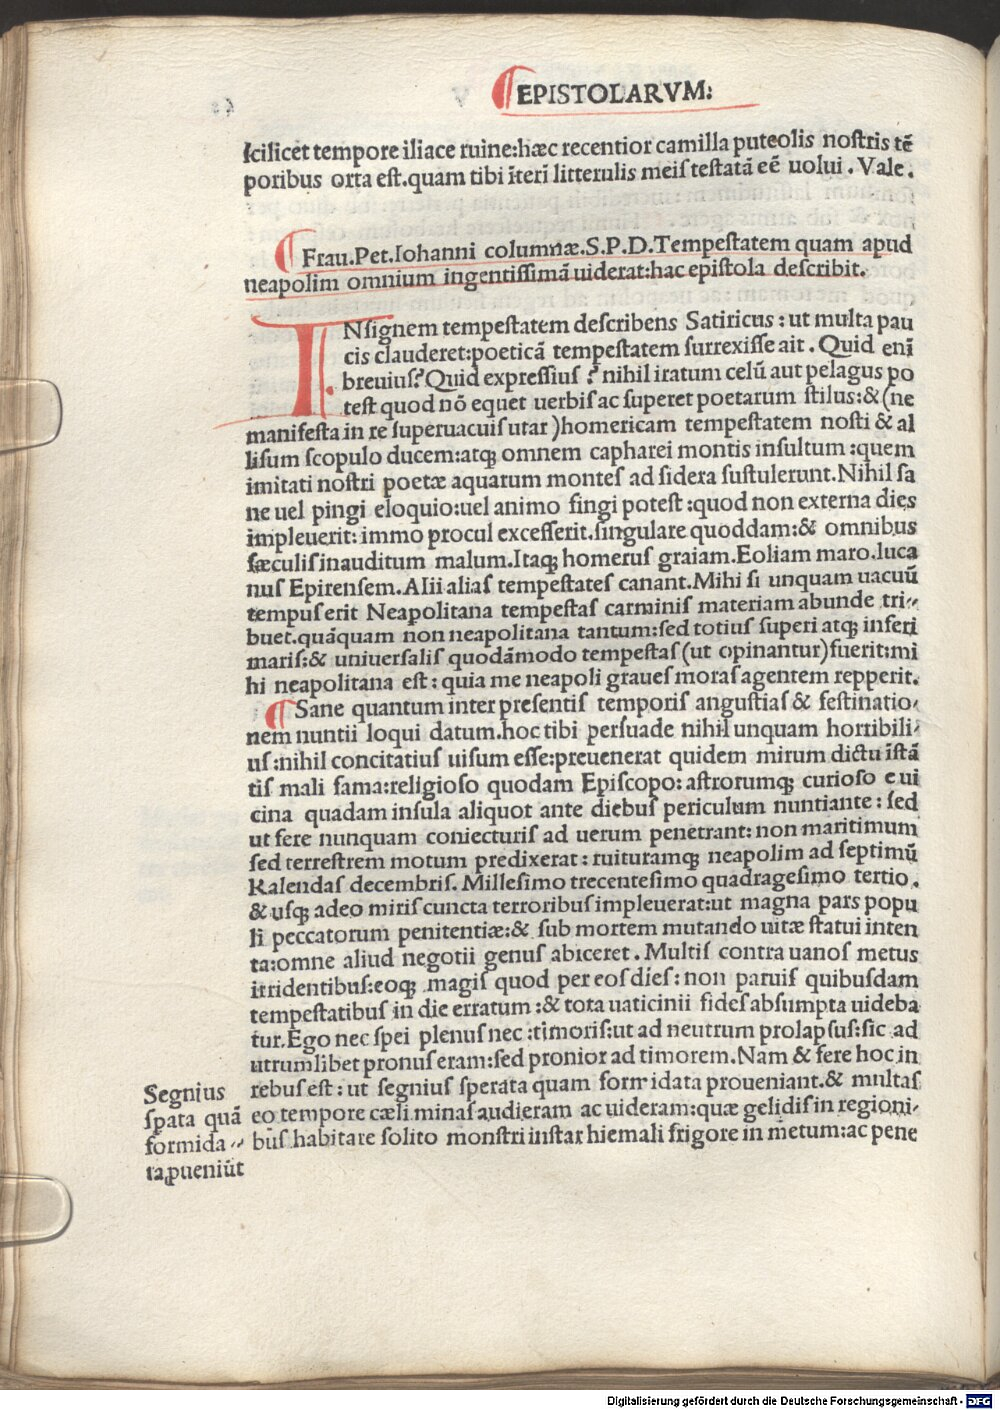 EPISTOLARVM:
ſcilicet tempore iliace ruine:hæc recentior camilla puteolis noſtris tē
poribus orta eſt.quam tibi īterī litterulis meiſ teſtatā eē uolui. Vale.
Frau.Pet.Iohanni columnæ.S.P.D.Tempeſtatem quam apud
neapolim omnium ingentiſſimā uiderat:hac epiſtola deſcribit.
INſignem tempeſtatem deſcribens Satiricus: ut multa pau
cis clauderet:poeticā tempeſtatem ſurrexiſſe ait. Quid enī
breuius? Quid expreſſius? nihil iratum celū aut pelagus po
teſt quod nō equet uerbiſ ac ſuperet poetarum ſtilus:& (ne
manifeſta in re ſuperuacuiſ utar )homericam tempeſtatem noſti & al
liſum ſcopulo ducem:atq; omnem capharei montis inſultum :quem
imitati noſtri poetæ aquarum monteſ ad ſidera ſuſtulerunt.Nihil ſa
ne uel pingi eloquio:uel animo fingi poteſt :quod non externa dies
impleuerit: immo procul exceſſerit.ſingulare quoddam:& omnibus
ſæculiſ inauditum malum.Itaq; homerus graiam.Eoliam maro.luca
nuſ Epirenſem.Alii aliaſ tempeſtateſ canant.Mihi ſi unquam uacuū
tempuſ erit Neapolitana tempeſtaſ carminiſ materiam abunde tri-
buet.quāquam non neapolitana tantum:ſed totiuſ ſuperi atq; inferi
mariſ:& uniuerſalis quodāmodo tempeſtaſ (ut opinantur)fuerit:mi
hi neapolitana eſt: quia me neapoli graueſ moraſ agentem repperit.
Sane quantum inter preſentiſ temporiſ anguſtiaſ & feſtinatio-
nem nuntii loqui datum.hoc tibi perſuade nihil unquam horribili-
uſ :nihil concitatiuſ uiſum eſſe:preuenerat quidem mirum dictu īſtā
tiſ mali fama:religioſo quodam Epiſcopo: aſtrorumq; curioſo e ui
cina quadam inſula aliquot ante diebuſ periculum nuntiante: ſed
ut fere nunquam coniecturiſ ad uerum penetrant: non maritimum
ſed terreſtrem motum predixerat: ruituramq; neapolim ad ſeptimū
Kalendaſ decembriſ. Milleſimo trecenteſimo quadrageſimo tertio.
& uſq; adeo miriſ cuncta terroribuſ impleuerat:ut magna parſ popu
li peccatorum penitentiæ:& ſub mortem mutando uitæ ſtatui inten
ta:omne aliud negotii genuſ abiceret. Multiſ contra uanoſ metus
irridentibuſ:eoq; magiſ quod per eoſ dieſ: non paruiſ quibuſdam
tempeſtatibuſ in die erratum :& tota uaticinii fideſ abſumpta uideba
tur.Ego nec ſpei plenuſ nec :timoriſ:ut ad neutrum prolapſuſ:ſic ad
utrumlibet pronuſ eram:ſed pronior ad timorem.Nam & fere hoc in
rebuſ eſt: ut ſegniuſ ſperata quam formidata proueniant.& multaſ
eo tempore cæli minaſ audieram ac uideram:quæ gelidiſ in regioni-
buſ habitare ſolito monſtri inſtar hiemali frigore in metum:ac pene
Segnius
ſpata quā
formida-
ta,pueniūt
Digitalisierung gefördert durch die Deutsche Forschungsgemeinschaft - DFG